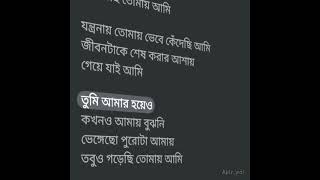 তোমায় আমি
যন্ত্রনায় তোমায় ভেবে কেঁদেছি আমি
জীবনটাকে শেষ করার আশায়
গেয়ে যাই আমি
তুমি আমার হয়েও
কখনও আমায় বুঝনি
ভেঙ্গেছো পুরোটা আমায়
তবুও গড়েছি তোমায় আমি